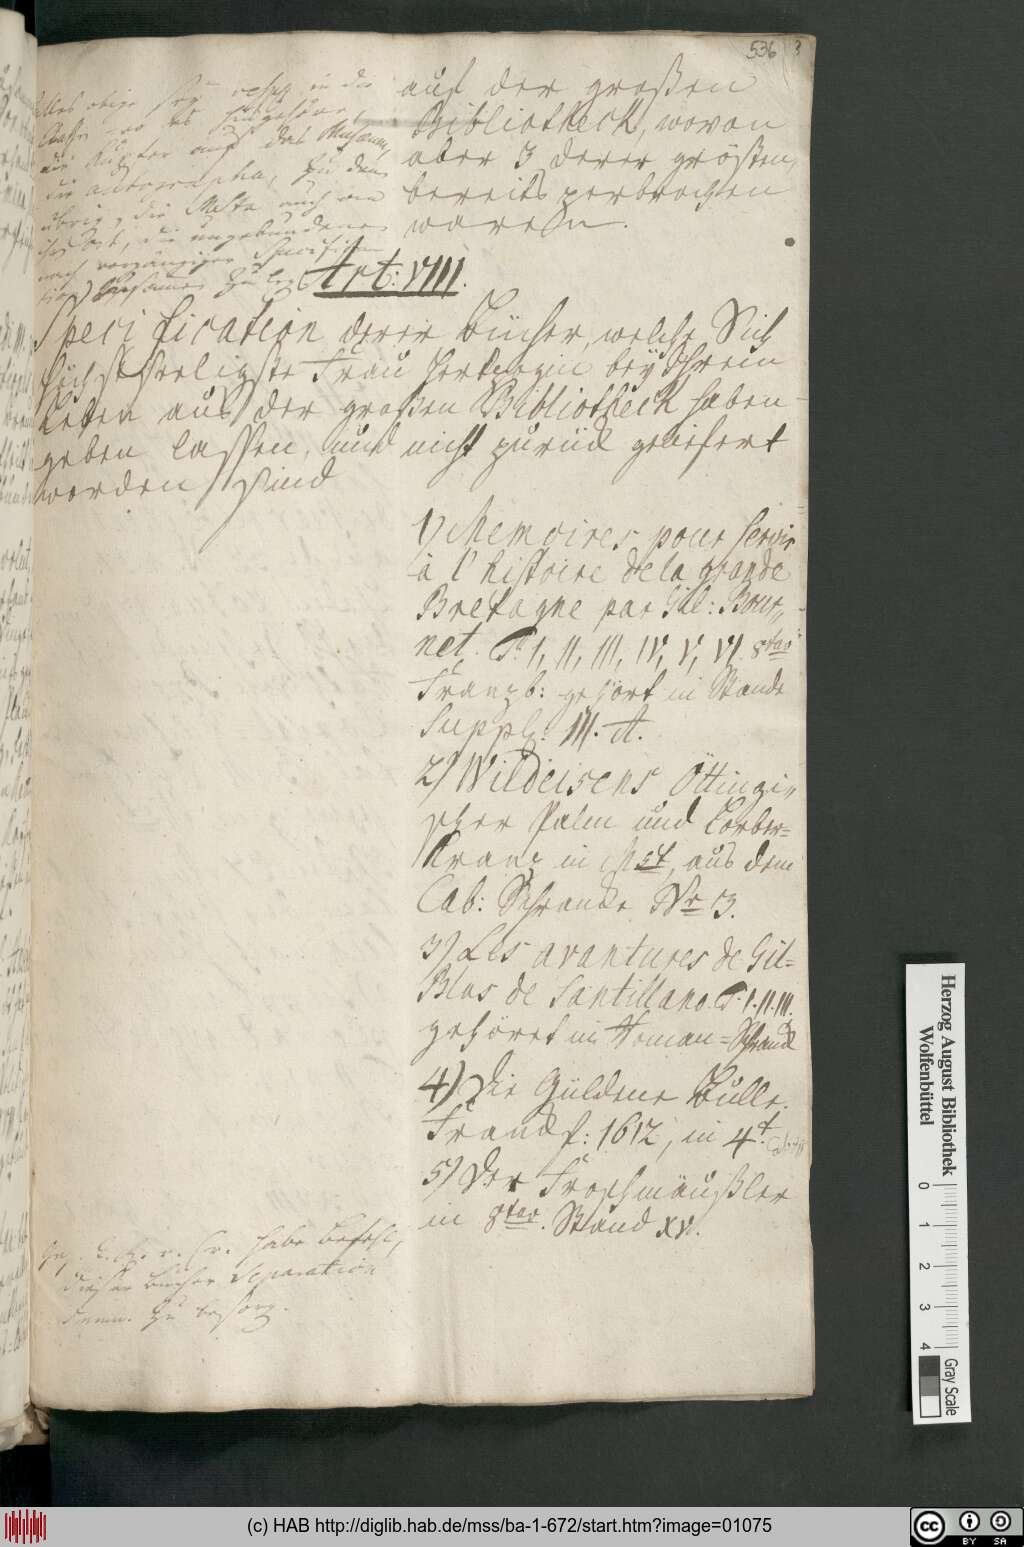 536
aus der großen
Bibliotheck, wovon
aber 3 derer größten,
bereits zerbrochen
waren.
die Kupfer auf das
die autographa, zu den
übrig, die auch von
die ungebundene
nach vorgängiger
Art: VIII.
Specification derer Bücher, welche Sich
höchstseeligste Frau Hertzogin bey Ihrem
Leben aus der großen Bibliotheck haben
geben lassen, und nicht zurück geliefert
worden sind
1) Memoires pour servir
à l'histoire de la grande
Bretagne par Gil: Bour,,
net. T. I, II, III, IV, V, VI. 8tav
Franzb: gehört in Stande
Suppl: III. A.
2) Wildeisens Öttingi,,
scher Palm und Lorber=
Kranz in Mst, aus dem
Cab: Schranke Nr 3.
3) Les avantures de Gil=
Blas de Santillane. T. I. II. III.
gehöret in Roman=Schrank
4) Die Güldene Bulle.
Franckf: 1612, in 4t.
5) Der Froschmäußler
in 8tav. Stand XV.
habe Befehl,
dieser Bücher Separation
zu besorg.
Herzog August Bibliothek
Wolfenbüttel
0 1 2 3 4
Gray Scale
(c) HAB http://diglib.hab.de/mss/ba-1-672/start.htm?image=01075
HAB
cc BY SA